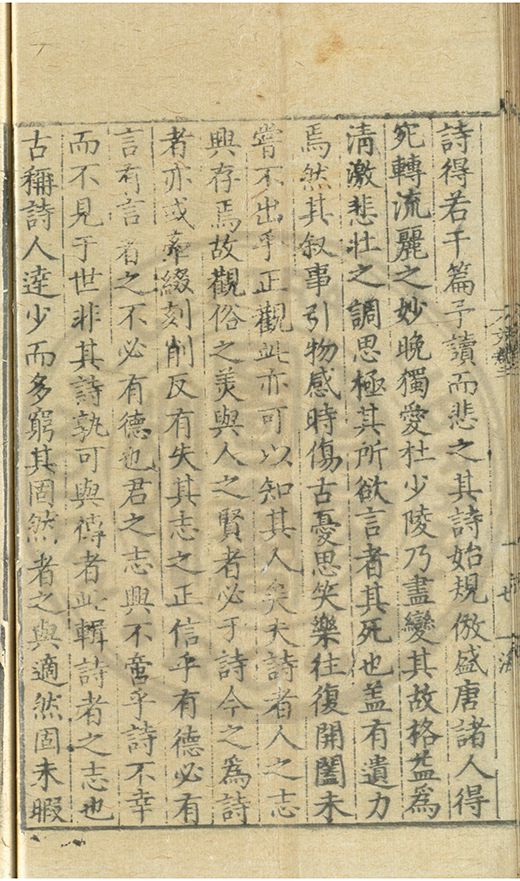 詩得若干篇予讀而悲之其詩始規倣盛唐諸人得
宛轉流麗之妙晚獨愛杜少陵乃盡變其故格益為
清激悲壯之調思極其所欲言者其死也盖有遺力
焉然其叙事引物感時傷古憂思笑樂往復開闔未
嘗不出乎正觀此亦可以知其人矣夫詩者人之志
興存焉故觀俗之美與人之賢者必于詩今之為詩
者亦或牽綴刻削反有失其志之正信乎有德必有
言有言者之不必有德也君之志興不啻乎詩不幸
而不見于世非其詩孰可與傳者此輯詩者之志也
古稱詩人達少而多窮其固然者之與適然固未暇